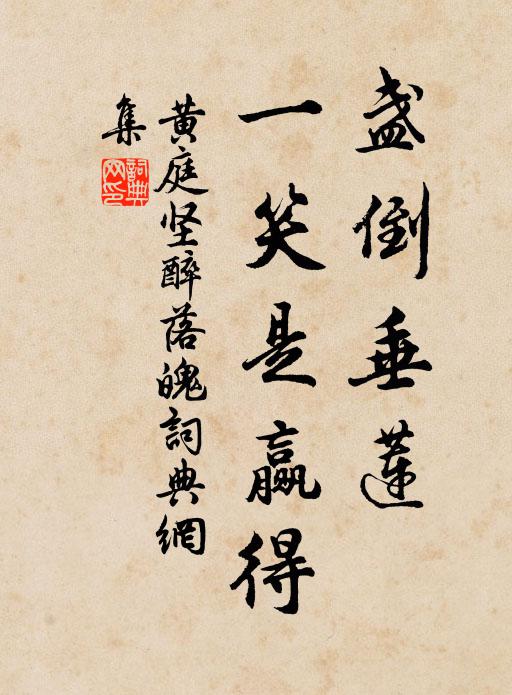 盏倒垂莲
一笑是赢得
黄庭坚醉落魄詞典網
集
詞典网印